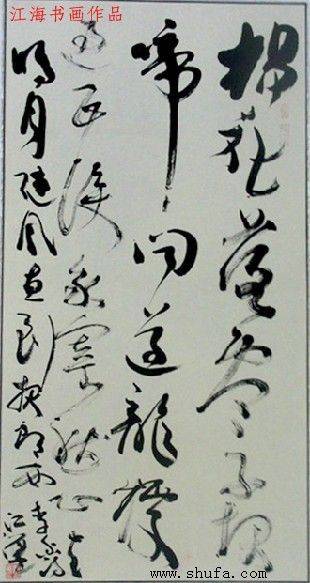 江海书画作品
楊花落尽子規
啼闻道龍標
過五溪我寄愁心与
明月随风直到夜郎西
江海
www.shufa.com